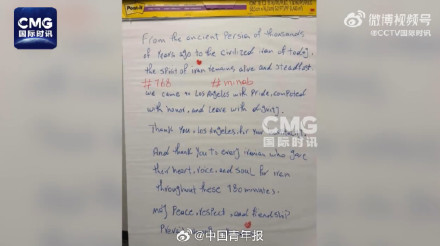 CMG
国际时讯
微博视频号
@CCTV国际时讯
Post-it
From the ancient Persian of thousands
of Years ago to the civilized iran of today,
the spirit of iran remains alive and steadfast.
#168 #minab
we came to Los Angeles with Pride, competed
with honor, and leave with dignity.
Thank you, Los Angeles, for your
CMG
国际时讯
And thank you to every iranian who gave
their heart, voice, and soul for iran
throughout these 180 minutes.
may Peace, respect, and friendship
@中国青年报